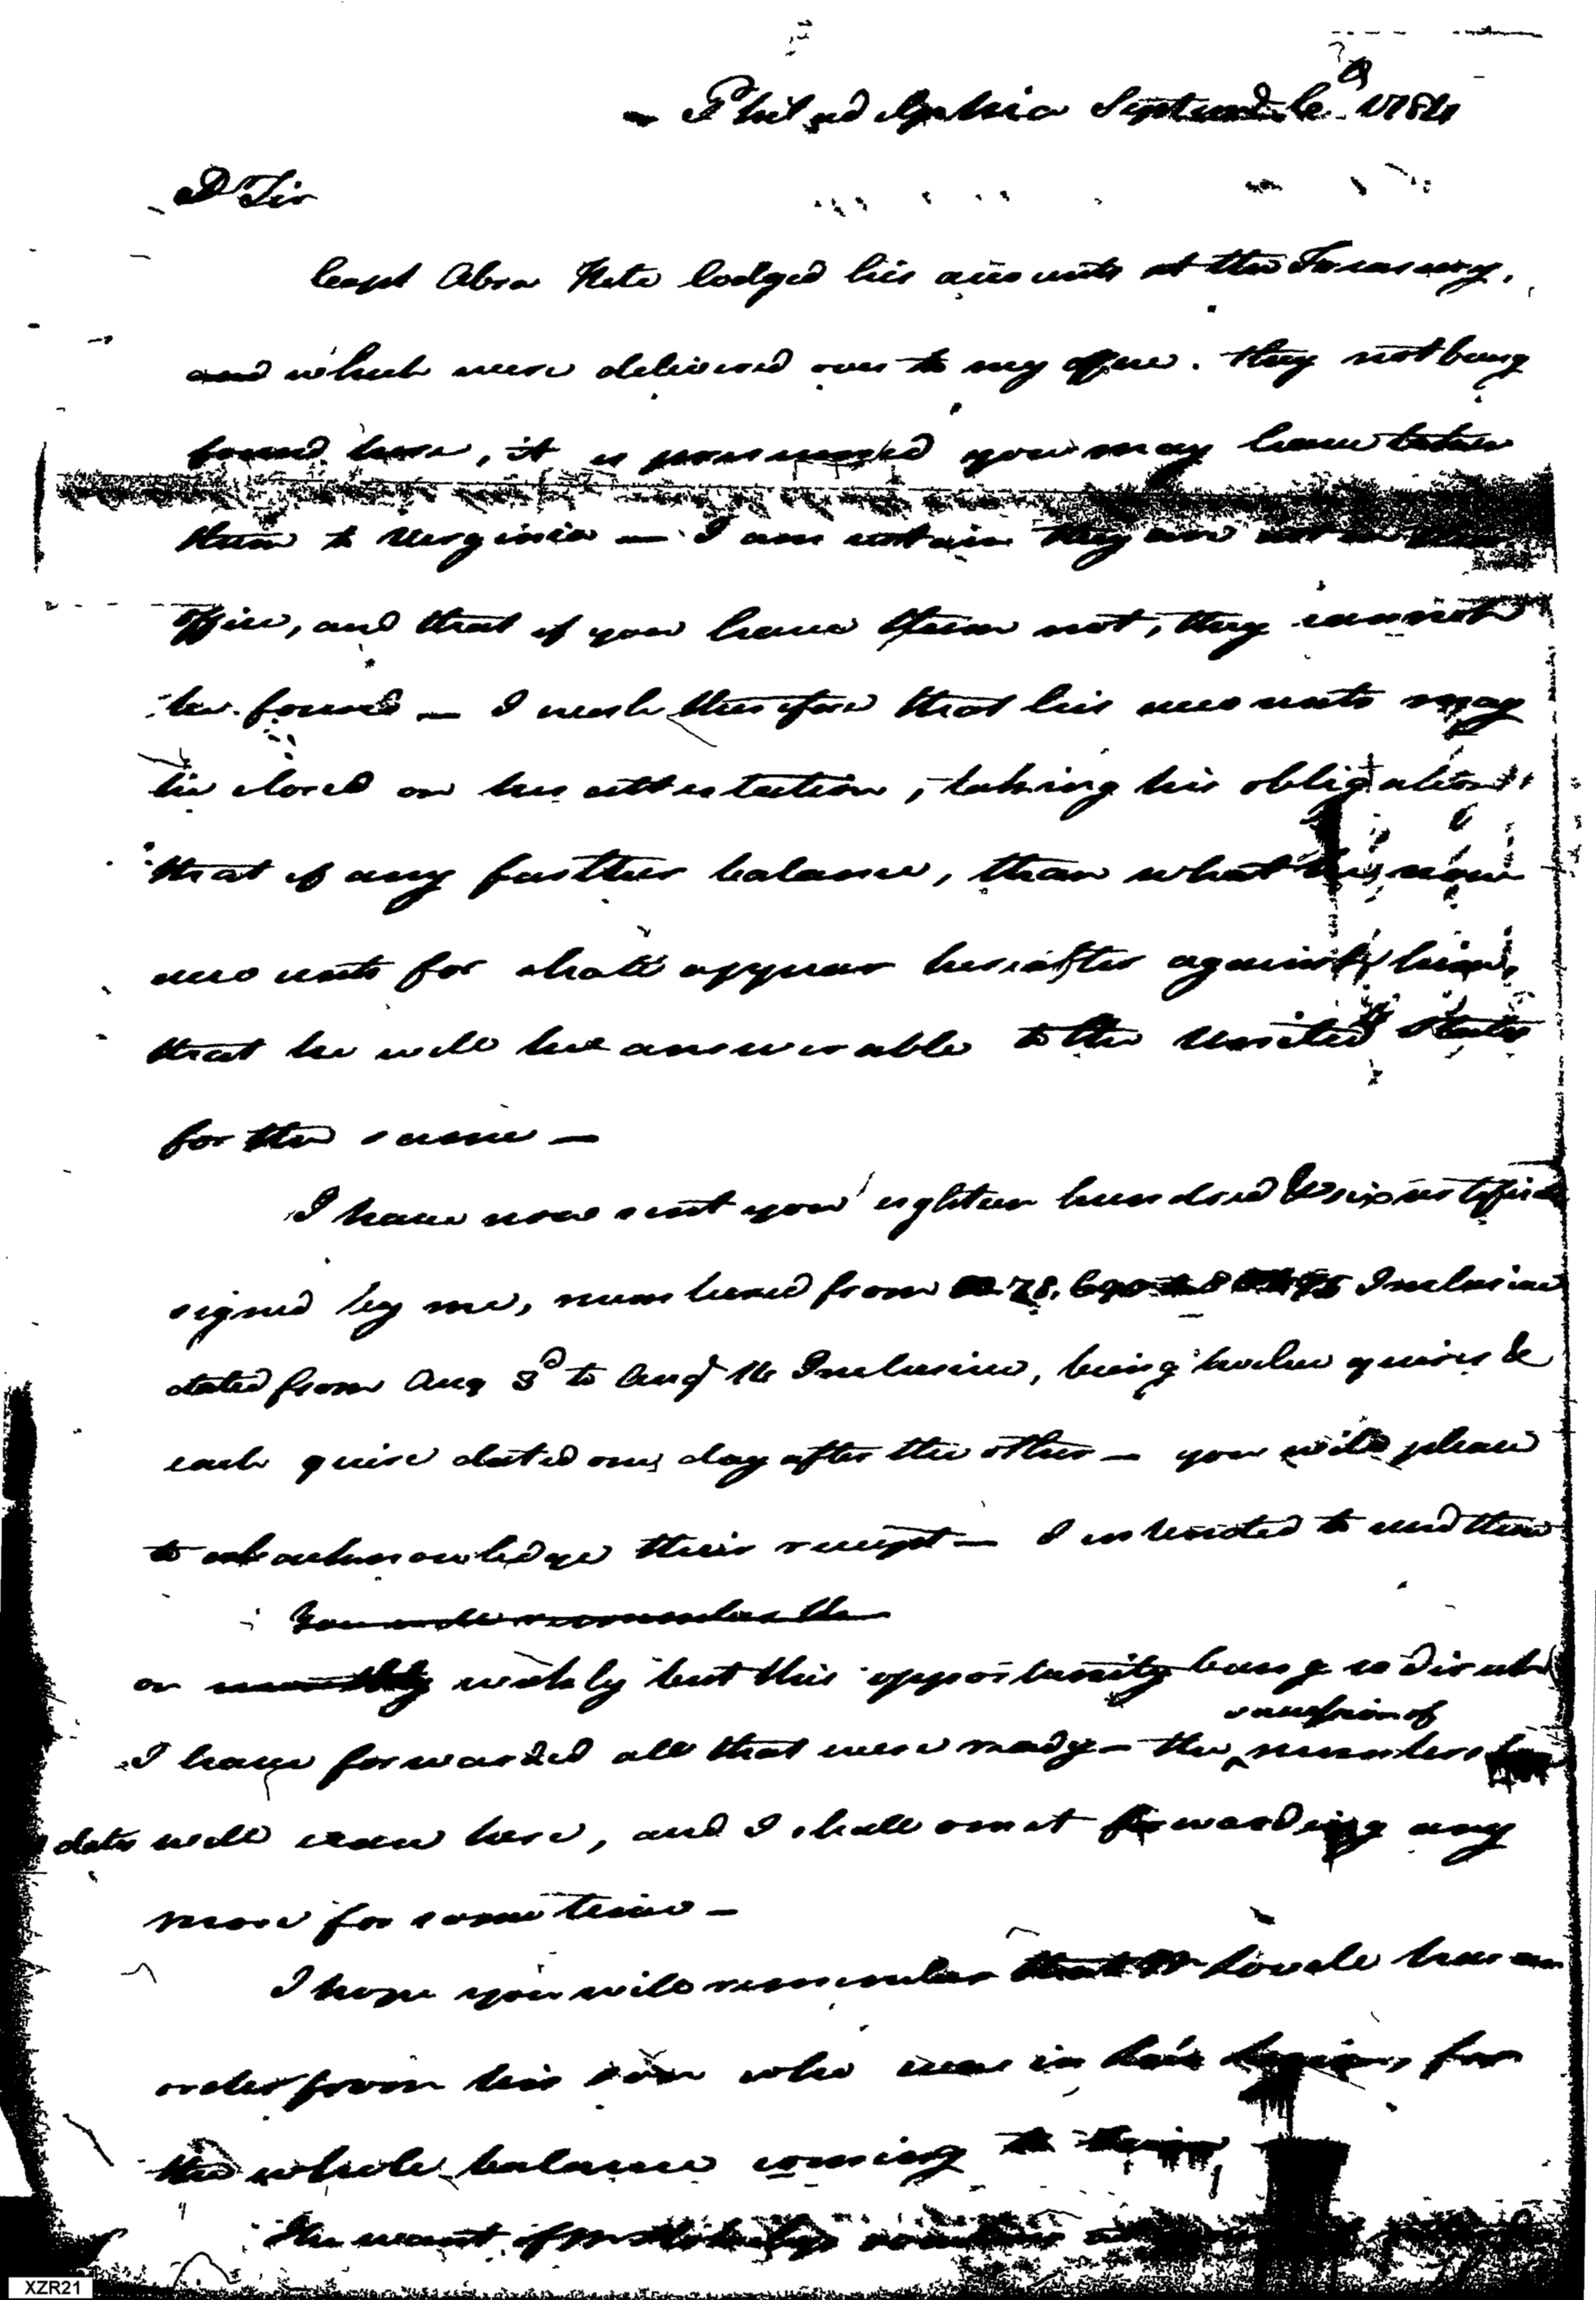 Philadelphia September 9 1784
D Sir
Capt Abra Kete lodged his accounts at the Treasury,
and which were delivered over to my office. they not being
found here, it is presumed you may have taken
them to Virginia — I am certain they are not in this
office, and that if you have them not, they cannot
be found — I wish therefore that his accounts may
be closed on his attestation, taking his obligation
that if any further balance, than what he now
accounts for shall appear hereafter against him,
that he will be answerable to the United States
for the same —
I have now sent you eighteen hundred & six certificates
signed by me, numbered from 78. Inclusive
dated from Aug 3d to Aug 16 Inclusive, being twelve quires &
each quire dated one day after the other — you will please
to acknowledge their receipt — I intended to send them
You will remember the
on monthly weekly but this opportunity being so direct
succession of
I have forwarded all that were ready — the numbers
date will cease here, and I shall omit forwarding any
more for some time —
I hope you will remember that Mr Lovele has an
order from his son who was in for
the whole balance coming to
The want of
XZR21